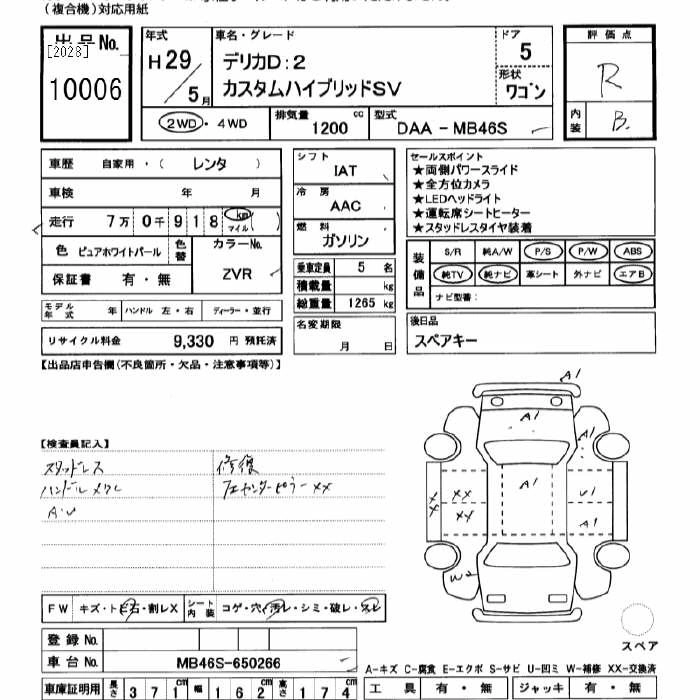 (複合機)対応用紙
出品No.
[2028]
10006
年式
H29/5月
車名・グレード
デリカD:2
カスタムハイブリッドSV
ドア
5
形状
ワゴン
評価点
R
内装
B.
2WD・4WD
排気量
1200 cc
型式
DAA - MB46S
車歴 自家用・( レンタ )
車検 年 月
走行 7万 0千 9 1 8 km マイル ( )
色 ピュアホワイトパール
色替
カラーNo.
ZVR
保証書 有・無
モデル年式 年 ハンドル 左・右 ディーラー・並行
リサイクル料金 9,330 円 預託済
シフト
IAT
冷房
AAC
燃料
ガソリン
乗車定員 5 名
積載量 kg
総重量 1265 kg
名変期限
月 日
セールスポイント
★両側パワースライド
★全方位カメラ
★LEDヘッドライト
★運転席シートヒーター
★スタッドレスタイヤ装着
装備品
S/R 純A/W P/S P/W ABS
純TV 純ナビ 革シート 外ナビ エアB
ナビ型番:
後日品
スペアキー
【出品店申告欄(不良箇所・欠品・注意事項等)】
【検査員記入】
スタッドレス
ハンドルメクレ
A・U
修復
フロセンターピラーXX
A1
A1
A1
A1
XX
XX
XX
XY
U1
A1
W2
スペア
FW キズ・トビ石・割レX
シート内装 コゲ・穴・汚レ・シミ・破レ・スレ
登録No.
車台No. MB46S-650266
A-キズ C-腐食 E-エクボ S-サビ U-凹ミ W-補修 XX-交換済
車庫証明用 長さ 371cm 幅 162cm 高さ 174cm
工具 有・無 ジャッキ 有・無